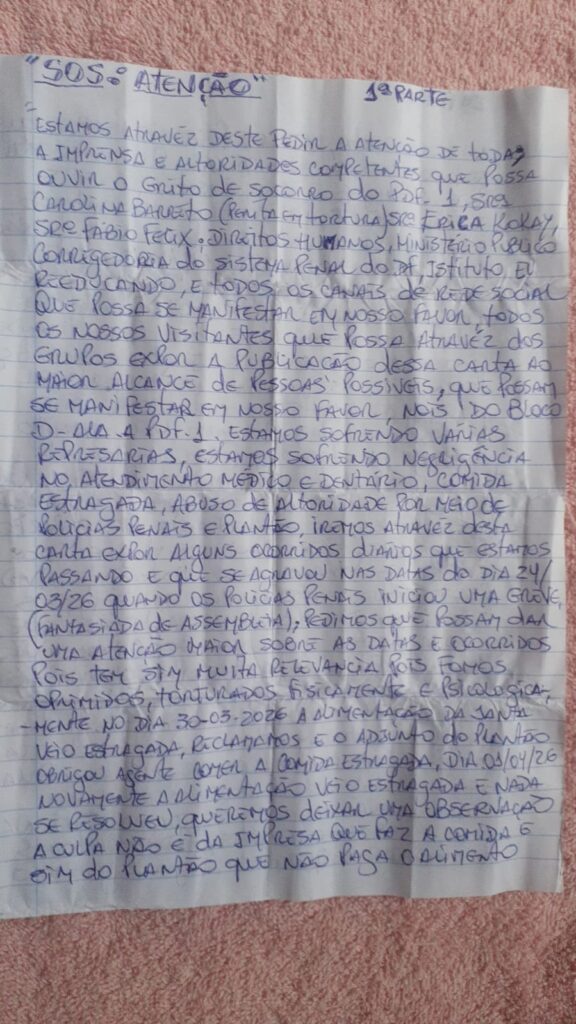 "SOS: ATENÇÃO"
1ª PARTE
ESTAMOS ATRAVÉZ DESTE PEDIR A ATENÇÃO DE TODA
A IMPRENSA E ALTORIDADES COMPETENTES QUE POSSA
OUVIR O GRITO DE SOCORRO DO PDF-1, SRª
CAROLINA BARRETO (PERITA EM TORTURA) SRª ERICA KOKAY,
SRº FABIO FELIX, DIREITOS HUMANOS, MINISTÉRIO PUBLICO
CORRIGEDORIA DO SISTEMA PENAL DO DF, ISTITUTO, EU
REEDUCANDO, E TODOS OS CANAIS DE REDE SOCIAL
QUE POSSA SE MANIFESTAR EM NOSSO FAVOR, TODOS
OS NOSSOS VISITANTES QUE POSSA ATRAVÉZ DOS
GRUPOS EXPOR A PUBLICAÇÃO DESSA CARTA AO
MAIOR ALCANCE DE PESSOAS POSSÍVEIS, QUE POSSAM
SE MANIFESTAR EM NOSSO FAVOR, NOIS DO BLOCO
D-ALA A PDF-1, ESTAMOS SOFRENDO VÁRIAS
REPRESARIAS, ESTAMOS SOFRENDO NEGRIGÊNCIA
NO, ATENDIMENTO MÉDICO E DENTÁRIO, COMIDA
ESTRAGADA, ABUSO DE ALTORIDADE POR MEIO DE
POLÍCIAS PENAIS E PLANTÃO, IREMOS ATRAVÉZ DESTA
CARTA EXPOR ALGUNS OCORRIDOS DIÁRIOS QUE ESTAMOS
PASSANDO E QUE SE AGRAVOU NAS DATAS DO DIA 24/
03/26 QUANDO OS POLÍCIAS PENAIS INICIOU UMA GREVE,
(FANTASIADA DE ASSEMBLEIA), PEDIMOS QUE POSSAM DAR
UMA ATENÇÃO MAIOR SOBRE AS DATAS E OCORRIDOS
POIS TEM SIM MUITA RELEVANCIA POIS FOMOS
OPRIMIDOS, TORTURADOS FISICAMENTE E PSICOLÓGICA-
-MENTE NO DIA 30-03-2026 A ALIMENTAÇÃO DA JANTA
VEIO ESTRAGADA, RECLAMAMOS E O ADJUNTO DO PLANTÃO
OBRIGOU AGENTE COMER A COMIDA ESTRAGADA, DIA 01/04/26
NOVAMENTE A ALIMENTAÇÃO VEIO ESTRAGADA E NADA
SE RESOLVEU, QUEREMOS DEIXAR UMA OBSERVAÇÃO
A CULPA NÃO É DA IMPRESA QUE FAZ A COMIDA E
SIM DO PLANTÃO QUE NÃO PAGA O ALIMENTO